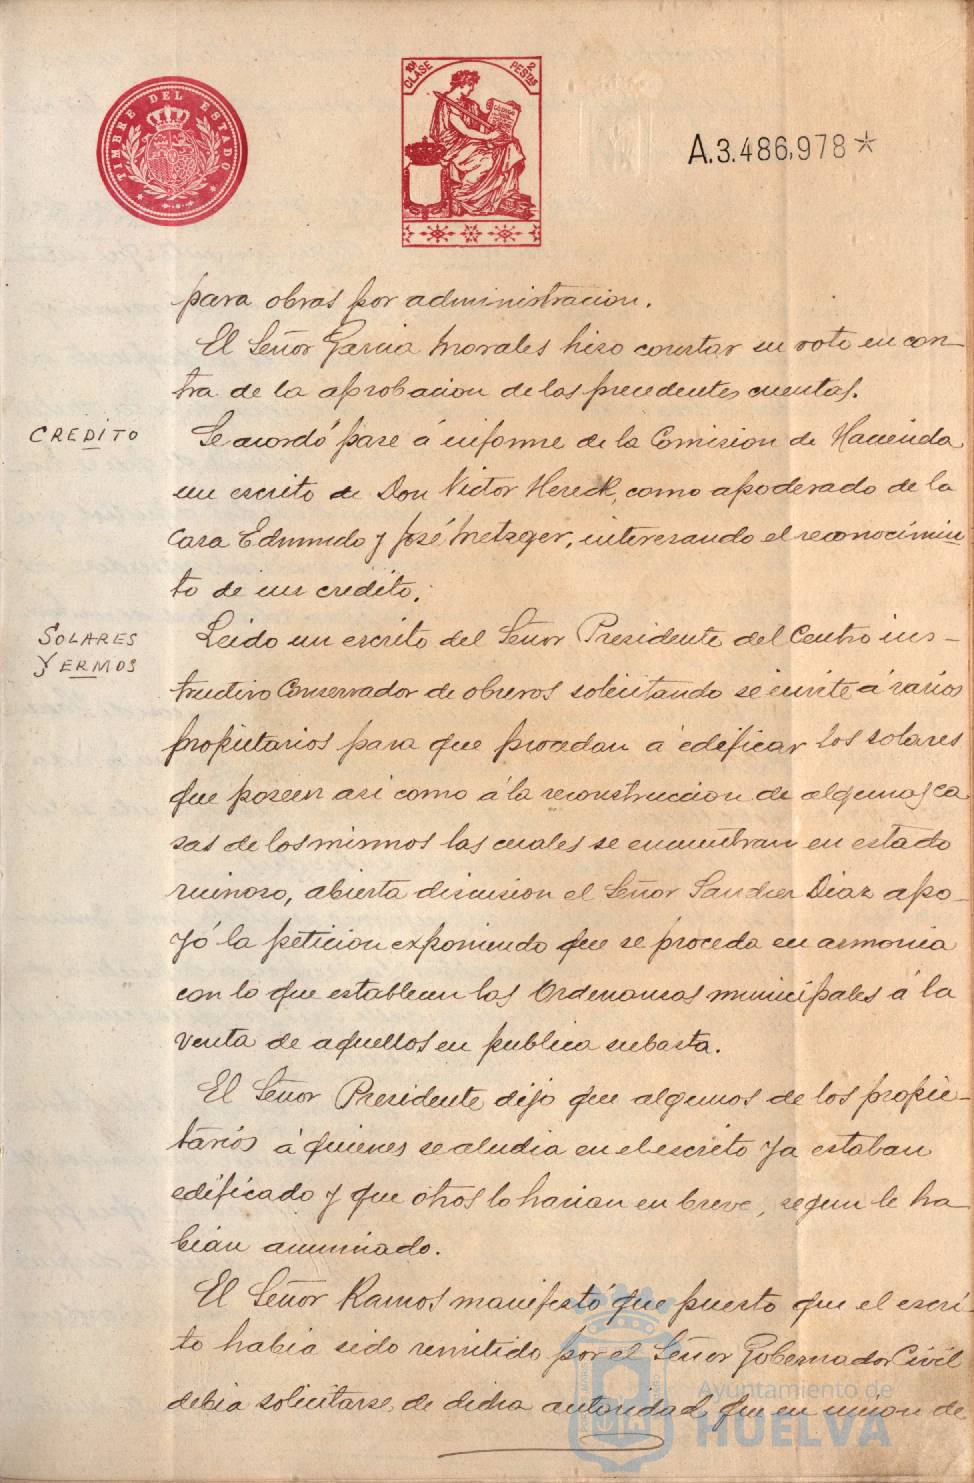 TIMBRE DEL ESTADO
10ª CLASE
2 PESTAS
A.3.486,978*
para obras por administracion.
El Señor Garcia Morales hizo constar su voto en con-
tra de la aprobacion de las precedentes cuentas.
CREDITO
Se acordó pase á informe de la Comision de Hacienda
un escrito de Don Victor Hereck, como apoderado de la
casa Edmundo y José Metzger, interesando el reconocimien
to de un credito.
SOLARES
YERMOS
Leido un escrito del Señor Presidente del Centro ins-
tructivo Conservador de obreros solicitando se invite á varios
propietarios para que procedan á edificar los solares
que poseen asi como á la reconstruccion de algunas ca
sas de los mismos las cuales se encuentran en estado
ruinoso, abierta discusion el Señor Sanchez Diaz apo-
yó la peticion exponiendo que se proceda en armonia
con lo que establecen las Ordenanzas municipales á la
venta de aquellos en publica subasta.
El Señor Presidente dijo que algunos de los propie-
tarios á quienes se aludia en el escrito ya estaban
edificado y que otros lo harian en breve, segun le ha
bian anunciado.
El Señor Ramos manifestó que puesto que el escri-
to habia sido remitido por el Señor Gobernador Civil
debia solicitarse de dicha autoridad que en union de
Ayuntamiento de
HUELVA